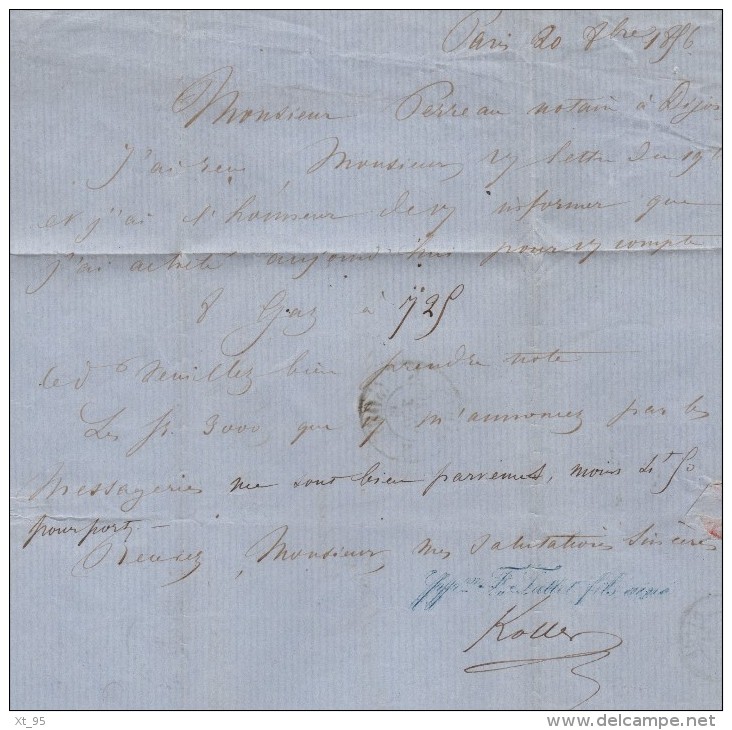 Paris 20 8bre 1856
Monsieur Perreau notaire à Dijon
J'ai reçu, Monsieur, vy lettre du 19 ct
et j'ai l'honneur de vy informer que
j'ai acheté aujourd'hui pour vy compte
8 Gaz à 725
Veuillez bien prendre note
Les fr. 3000 que vy m'annoncez par les
Messageries me sont bien parvenus, moins 4f 50
pour port. —
Recevez, Monsieur, mes salutations sincères
fils ainé
Koller
Xt_95
delcampe.net